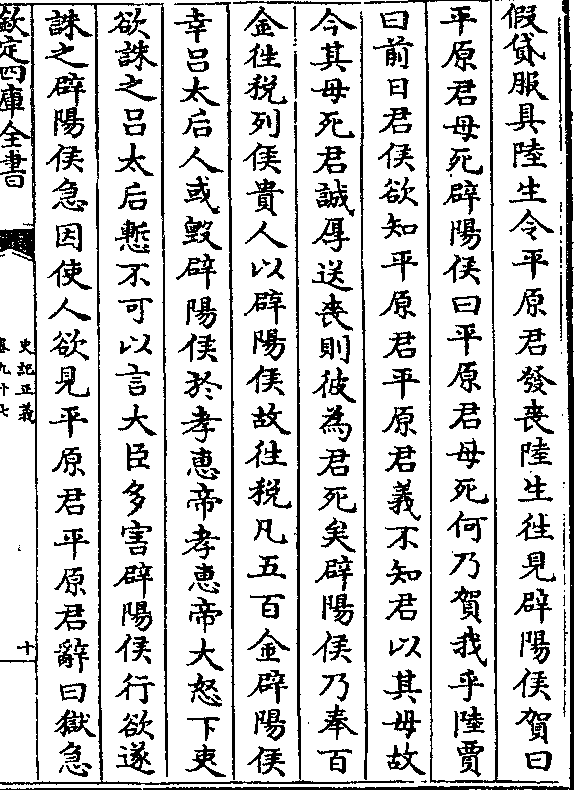 假貸服具陸生令平原君發喪陸生徃見辟陽侯賀曰
平原君母死辟陽侯曰平原君母死何乃賀我乎陸賈
曰前日君侯欲知平原君平原君義不知君以其母故
今其母死君誠厚送喪則彼為君死矣辟陽侯乃奉百
金徃稅列侯貴人以辟陽侯故徃稅凡五百金辟陽侯
幸吕太后人或毀辟陽侯於孝惠帝孝惠帝大怒下吏
欲誅之吕太后慙不可以言大臣多害辟陽侯行欲遂
誅之辟陽侯急因使人欲見平原君平原君辭曰獄急
欽定四庫全書
史記正義
卷九十七
十